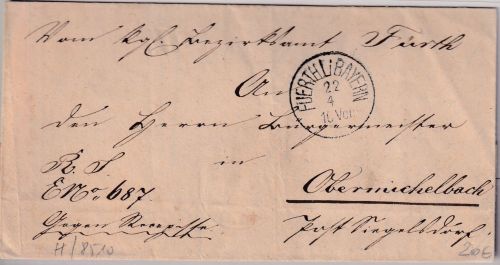 Vom kgl. Bezirksamt Fürth
An
FUERTH I/BAYERN
22
4
den Herrn Bürgermeister
R. S.
in
ENo. 687.
Obermichelbach
Gegen Recepisse.
Post Siegelsdorf.
H/8510
20€